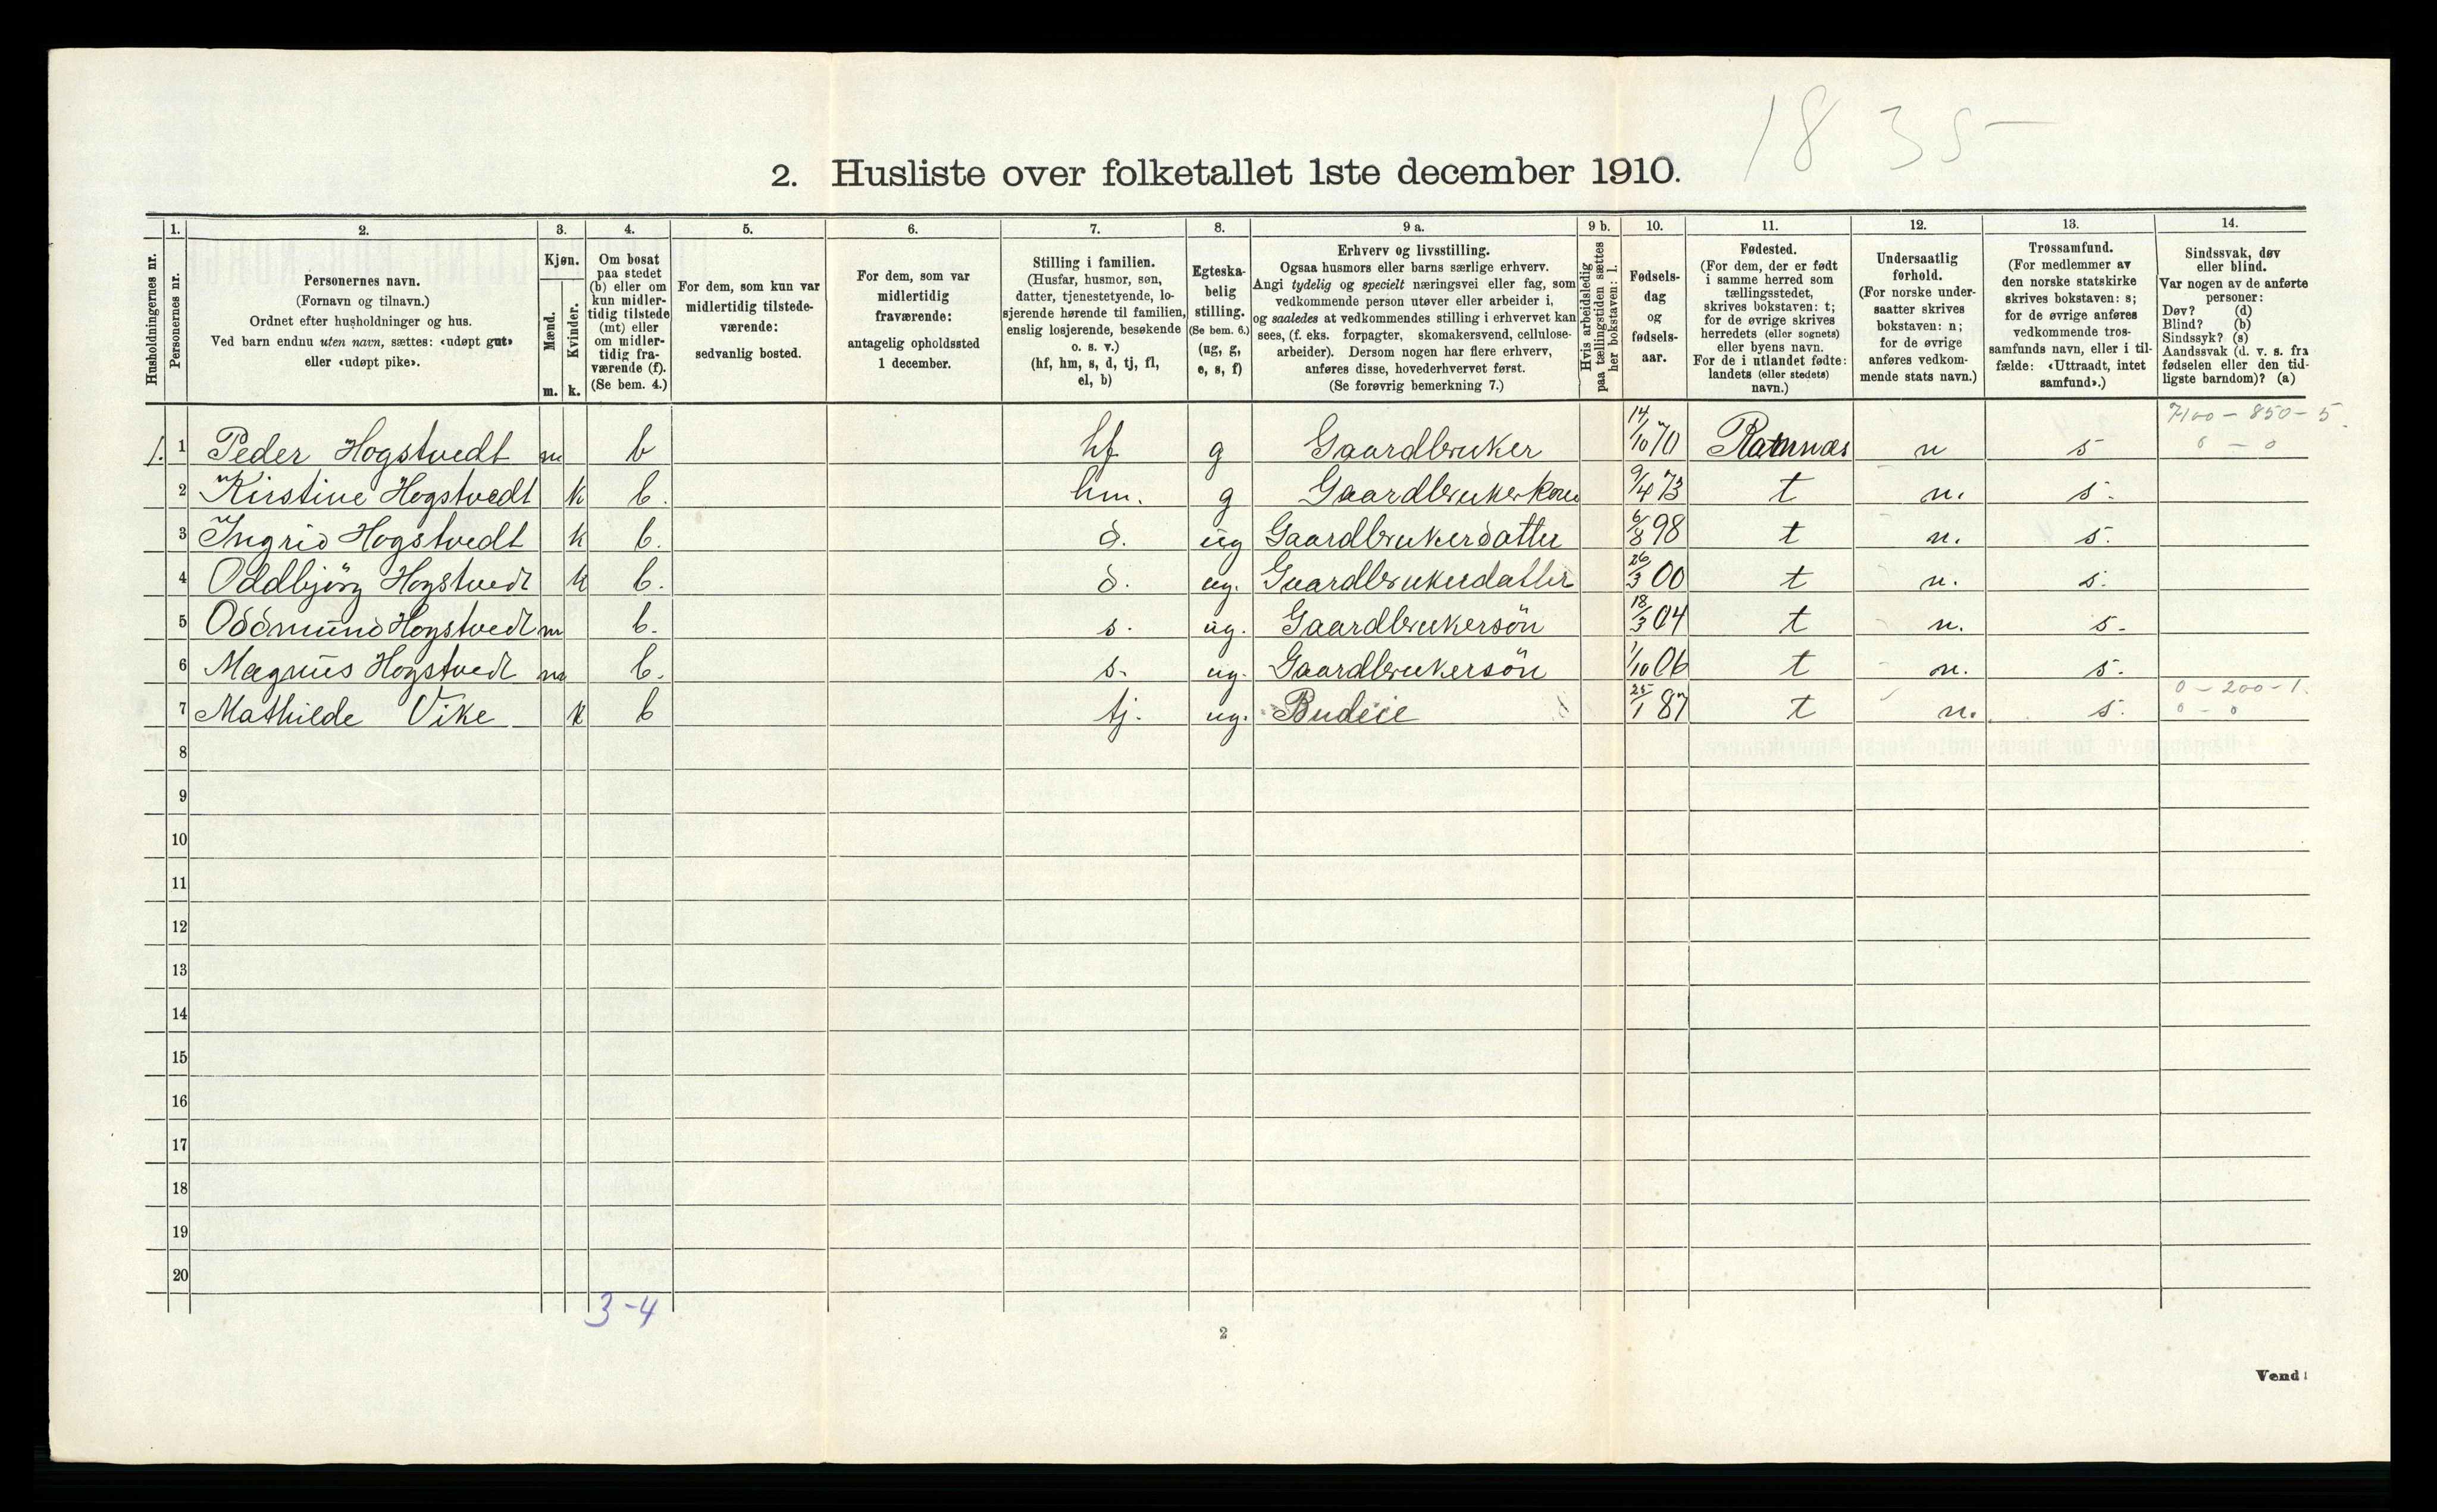 18 35
2. Husliste over folketallet 1ste december 1910.
Husholdningernes nr.
1. Personernes nr.
2. Personernes navn.
(Fornavn og tilnavn.)
Ordnet efter husholdninger og hus.
Ved barn endnu uten navn, sættes: «udøpt gut»
eller «udøpt pike».
3. Kjøn.
Mænd. m.
Kvinder. k.
4. Om bosat
paa stedet
(b) eller om
kun midler-
tidig tilstede
(mt) eller
om midler-
tidig fra-
værende (f).
(Se bem. 4.)
5. For dem, som kun var
midlertidig tilstede-
værende:
sedvanlig bosted.
6. For dem, som var
midlertidig
fraværende:
antagelig opholdssted
1 december.
7. Stilling i familien.
(Husfar, husmor, søn,
datter, tjenestetyende, lo-
sjerende hørende til familien,
enslig losjerende, besøkende
o. s. v.)
(hf, hm, s, d, tj, fl,
el, b)
8. Egteska-
belig
stilling.
(Se bem. 6.)
(ug, g,
e, s, f)
9 a. Erhverv og livsstilling.
Ogsaa husmors eller barns særlige erhverv.
Angi tydelig og specielt næringsvei eller fag, som
vedkommende person utøver eller arbeider i,
og saaledes at vedkommendes stilling i erhvervet kan
sees, (f. eks. forpagter, skomakersvend, cellulose-
arbeider). Dersom nogen har flere erhverv,
anføres disse, hovederhvervet først.
(Se forøvrig bemerkning 7.)
9 b. Hvis arbeidsledig
paa tællingstiden sættes
her bokstaven: l.
10. Fødsels-
dag
og
fødsels-
aar.
11. Fødested.
(For dem, der er født
i samme herred som
tællingsstedet,
skrives bokstaven: t;
for de øvrige skrives
herredets (eller sognets)
eller byens navn.
For de i utlandet fødte:
landets (eller stedets)
navn.)
12. Undersaatlig
forhold.
(For norske under-
saatter skrives
bokstaven: n;
for de øvrige
anføres vedkom-
mende stats navn.)
13. Trossamfund.
(For medlemmer av
den norske statskirke
skrives bokstaven: s;
for de øvrige anføres
vedkommende tros-
samfunds navn, eller i til-
fælde: «Uttraadt, intet
samfund».)
14. Sindssvak, døv
eller blind.
Var nogen av de anførte
personer:
Døv? (d)
Blind? (b)
Sindssyk? (s)
Aandssvak (d. v. s. fra
fødselen eller den tid-
ligste barndom)? (a)
7100 - 850 - 5.
1. 1 Peder Hogstvedt m b hf g Gaardbruker 14/10 70 Ramnæs n s 0 - 0
2 Kirstine Hogstvedt k b. hm. g Gaardbrukerkone 9/4 73 t n. s.
3 Ingrid Hogstvedt k b. d. ug Gaardbrukerdatter 6/8 98 t n. s.
4 Oddbjörg Hogstvedt k b. d. ug. Gaardbrukerdatter 26/3 00 t n. s.
5 Oddmund Hogstvedt m b. s. ug. Gaardbrukersön 18/3 04 t n. s.
6 Magnus Hogstvedt m b. s. ug. Gaardbrukersön 1/10 06 t n. s.
0 - 200 - 1.
7 Mathilde Vike k b tj. ug. Budeie 25/1 87 t n. s. 0 - 0
8
9
10
11
12
13
14
15
16
17
18
19
20
3-4
2
Vend!